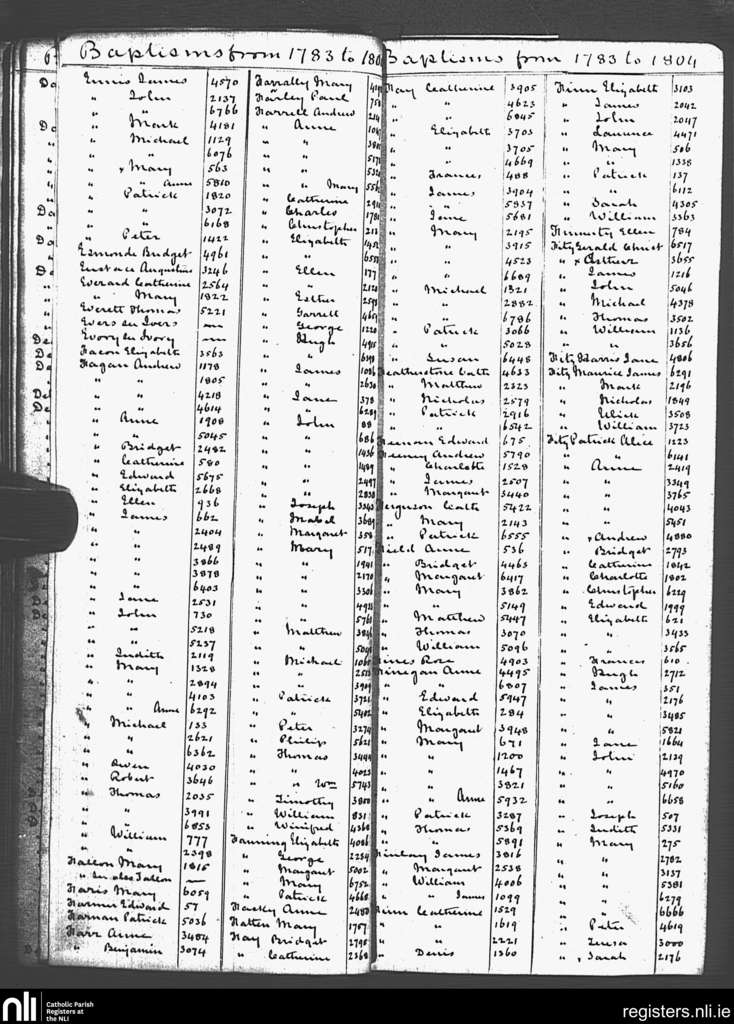 Baptisms from 1783 to 180
Ennis James 4570
" John 2137
" " 6766
" Mark 4181
" Michael 1129
" " 6076
" Mary 563
" " Anne 5810
" Patrick 1820
" " 3072
" " 6168
" Peter 1422
Esmonde Bridget 4961
Eustace Augustine 3246
Everard Catherine 2564
" Mary 1822
Everett Thomas 5221
Evers see Ivers —
Evory see Ivory —
Facon Elizabeth 3563
Fagan Andrew 1178
" " 1805
" " 4218
" " 4614
" Anne 1908
" " 5045
" Bridget 2482
" Catherine 580
" Edward 5675
" Elizabeth 2668
" Ellen 936
" James 662
" " 2404
" " 2489
" " 3866
" " 3878
" " 6403
" Jane 2531
" John 730
" " 5218
" " 5237
" Judith 2119
" Mary 1328
" " 2894
" " 4103
" " Anne 6292
" Michael 133
" " 2621
" " 6362
" Owen 4030
" Robert 3646
" Thomas 2035
" " 3991
" " 6853
" William 777
" " 2398
Fallon Mary 1815
" See also Tallon —
Faris Mary 6059
Farmer Edward 57
Farnan Patrick 5036
Farr Anne 3484
" Benjamin 3074
Farrally Mary
Farley Paul
Farrell Andrew
" Anne
" "
" "
" "
" " Mary
" Catherine
" Charles
" Christopher
" Elizabeth
" "
" Ellen 177
" "
" Esther
" Farrell
" George 1220
" Hugh
" "
" James
" "
" Jane 378
" "
" John 88
" " 686
" " 1436
" " 1489
" " 2497
" " 2838
" Joseph
" Mabel
" Margaret 358
" Mary 517
" " 1941
" " 2170
" " 3306
" "
" "
" Matthew
" "
" Michael
" "
" "
" Patrick
" "
" Peter 3274
" Philip 5621
" Thomas
" " 4023
" " Wm 5743
" Timothy 3800
" William 831
" Winifred 4368
Fanning Elizabeth 4086
" George 2254
" Margaret 5002
" Mary 6752
" Patrick 4668
Fasky Anne 2480
Fatten Mary 1757
Fay Bridget 2795
" Catherine 2368
Baptisms from 1783 to 1804
Fay Catherine 3905
" " 4623
" " 6845
" Elizabeth 3703
" " 3705
" " 4669
" Frances 488
" James 3904
" " 5837
" Jane 5681
" Mary 2195
" " 3915
" " 4523
" " 6689
" Michael 1321
" " 2882
" " 6786
" Patrick 3066
" " 5028
" Susan 6448
Featherstone Cath 4633
" Matthew 2323
" Nicholas 2579
" Patrick 2916
" " 6542
Feenan Edward 675
Feeney Andrew 5790
" Charlotte 1528
" James 2507
" Margaret 3440
Ferguson Cath 5422
" Mary 2143
" Patrick 6555
Field Anne 536
" Bridget 4463
" Margaret 6417
" Mary 3862
" " 5149
" Matthew 5447
" Thomas 3070
" William 5096
Fines Rose 4903
Finegan Anne 4495
" " 6807
" Edward 5947
" Elizabeth 284
" Margaret 3948
" Mary 671
" " 1200
" " 1467
" " 3821
" " Anne 5932
" Patrick 3287
" Thomas 5369
" " 5891
Finlay James 3816
" Margaret 2538
" William 4006
" " James 1099
Finn Catherine 1529
" " 1619
" " 2221
" Denis 1360
Finn Elizabeth 3103
" James 2042
" John 2047
" Laurence 4471
" Mary 506
" " 1338
" Patrick 137
" " 6112
" Sarah 4305
" William 3363
Finnerty Ellen 784
FitzGerald Christ 6517
" Arthur 3655
" James 1216
" John 5046
" Michael 4378
" Thomas 3502
" William 1136
" " 3656
Fitz Harris Jane 4806
Fitz Maurice James 6291
" Mark 2196
" Nicholas 1849
" Ulick 3508
" William 3723
FitzPatrick Alice 1223
" " 6141
" Anne 2419
" " 3349
" " 3765
" " 4043
" " 5451
" Andrew 4880
" Bridget 2793
" Catherine 1842
" Charlotte 1802
" Christopher 6229
" Edward 1999
" Elizabeth 621
" " 3433
" " 3565
" Frances 610
" Hugh 2712
" James 351
" " 2176
" " 3485
" " 5821
" Jane 1664
" John 2139
" " 4970
" " 5160
" " 6658
" Joseph 507
" Judith 5331
" Mary 275
" " 2782
" " 3137
" " 5381
" " 6279
" " 6666
" Peter 4619
" Teresa 3000
" Sarah 2176
nli Catholic Parish
Registers at
the NLI
registers.nli.ie